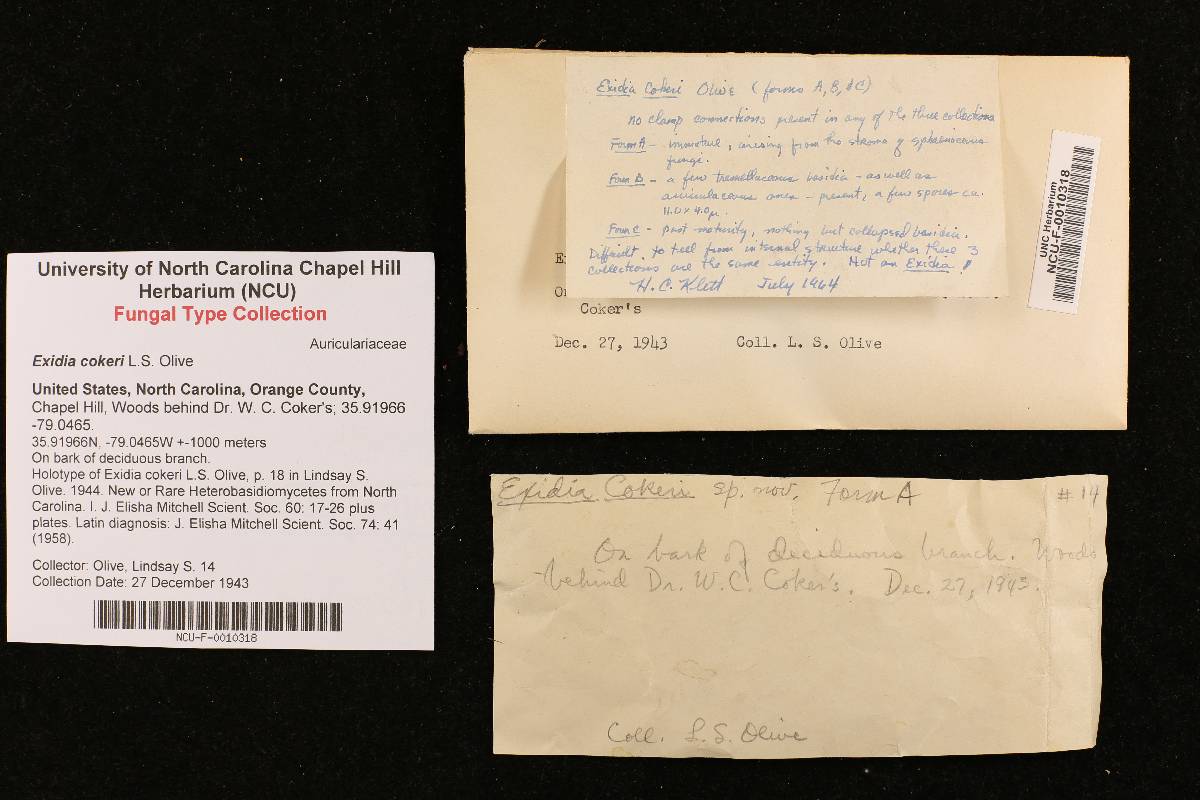 University of North Carolina Chapel Hill
Herbarium (NCU)
Fungal Type Collection
Auriculariaceae
Exidia cokeri L.S. Olive
United States, North Carolina, Orange County,
Chapel Hill, Woods behind Dr. W. C. Coker's; 35.91966
-79.0465.
35.91966N, -79.0465W +-1000 meters
On bark of deciduous branch.
Holotype of Exidia cokeri L.S. Olive, p. 18 in Lindsay S.
Olive. 1944. New or Rare Heterobasidiomycetes from North
Carolina. I. J. Elisha Mitchell Scient. Soc. 60: 17-26 plus
plates. Latin diagnosis: J. Elisha Mitchell Scient. Soc. 74: 41
(1958).
Collector: Olive, Lindsay S. 14
Collection Date: 27 December 1943
NCU-F-0010318
Exidia Cokeri Olive (forms A, B, & C)
No clamp connections present in any of the three collections
Form A - immature, arising from the stroma of sphaeriaceous
fungi.
Form B - a few tremellaceous basidia - as well as
auriculaceous ones - present, a few spores ca.
11.0 x 4.0µ.
Form C - past maturity, nothing but collapsed basidia.
Difficult to tell from internal structure whether these 3
collections are the same entity. Not an Exidia!
H. C. Klett July 1964
E
O
Coker's
Dec. 27, 1943 Coll. L. S. Olive
UNC Herbarium
NCU-F-0010318
Exidia Cokeri sp. nov. Form A #14
On bark of deciduous branch. Woods
behind Dr. W. C. Coker's. Dec. 27, 1943.
Coll. L. S. Olive